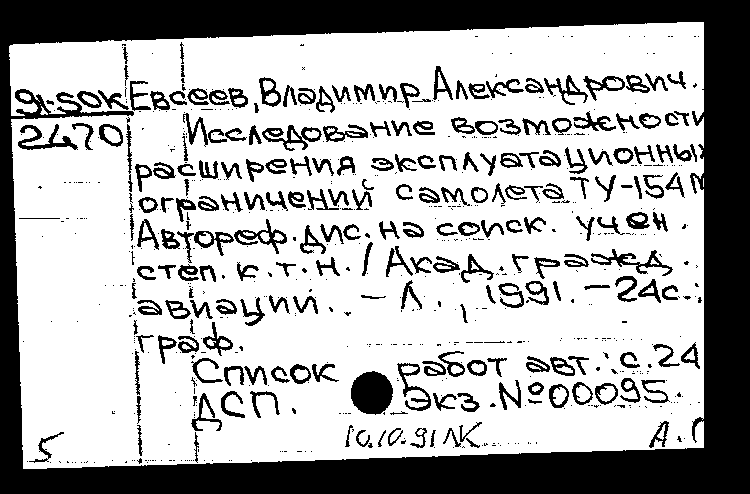 91-50К Евсеев, Владимир Александрович.
2470 Исследование возможности
расширения эксплуатационных
ограничений самолета ТУ-154М
Автореф. дис. на соиск. учен.
степ. к.т.н. / Акад. гражд.
авиации. - Л., 1991. - 24с.:
граф.
Список работ авт.: с.24
ДСП. Экз. №00095.
5 10.10.91 ЛК А.